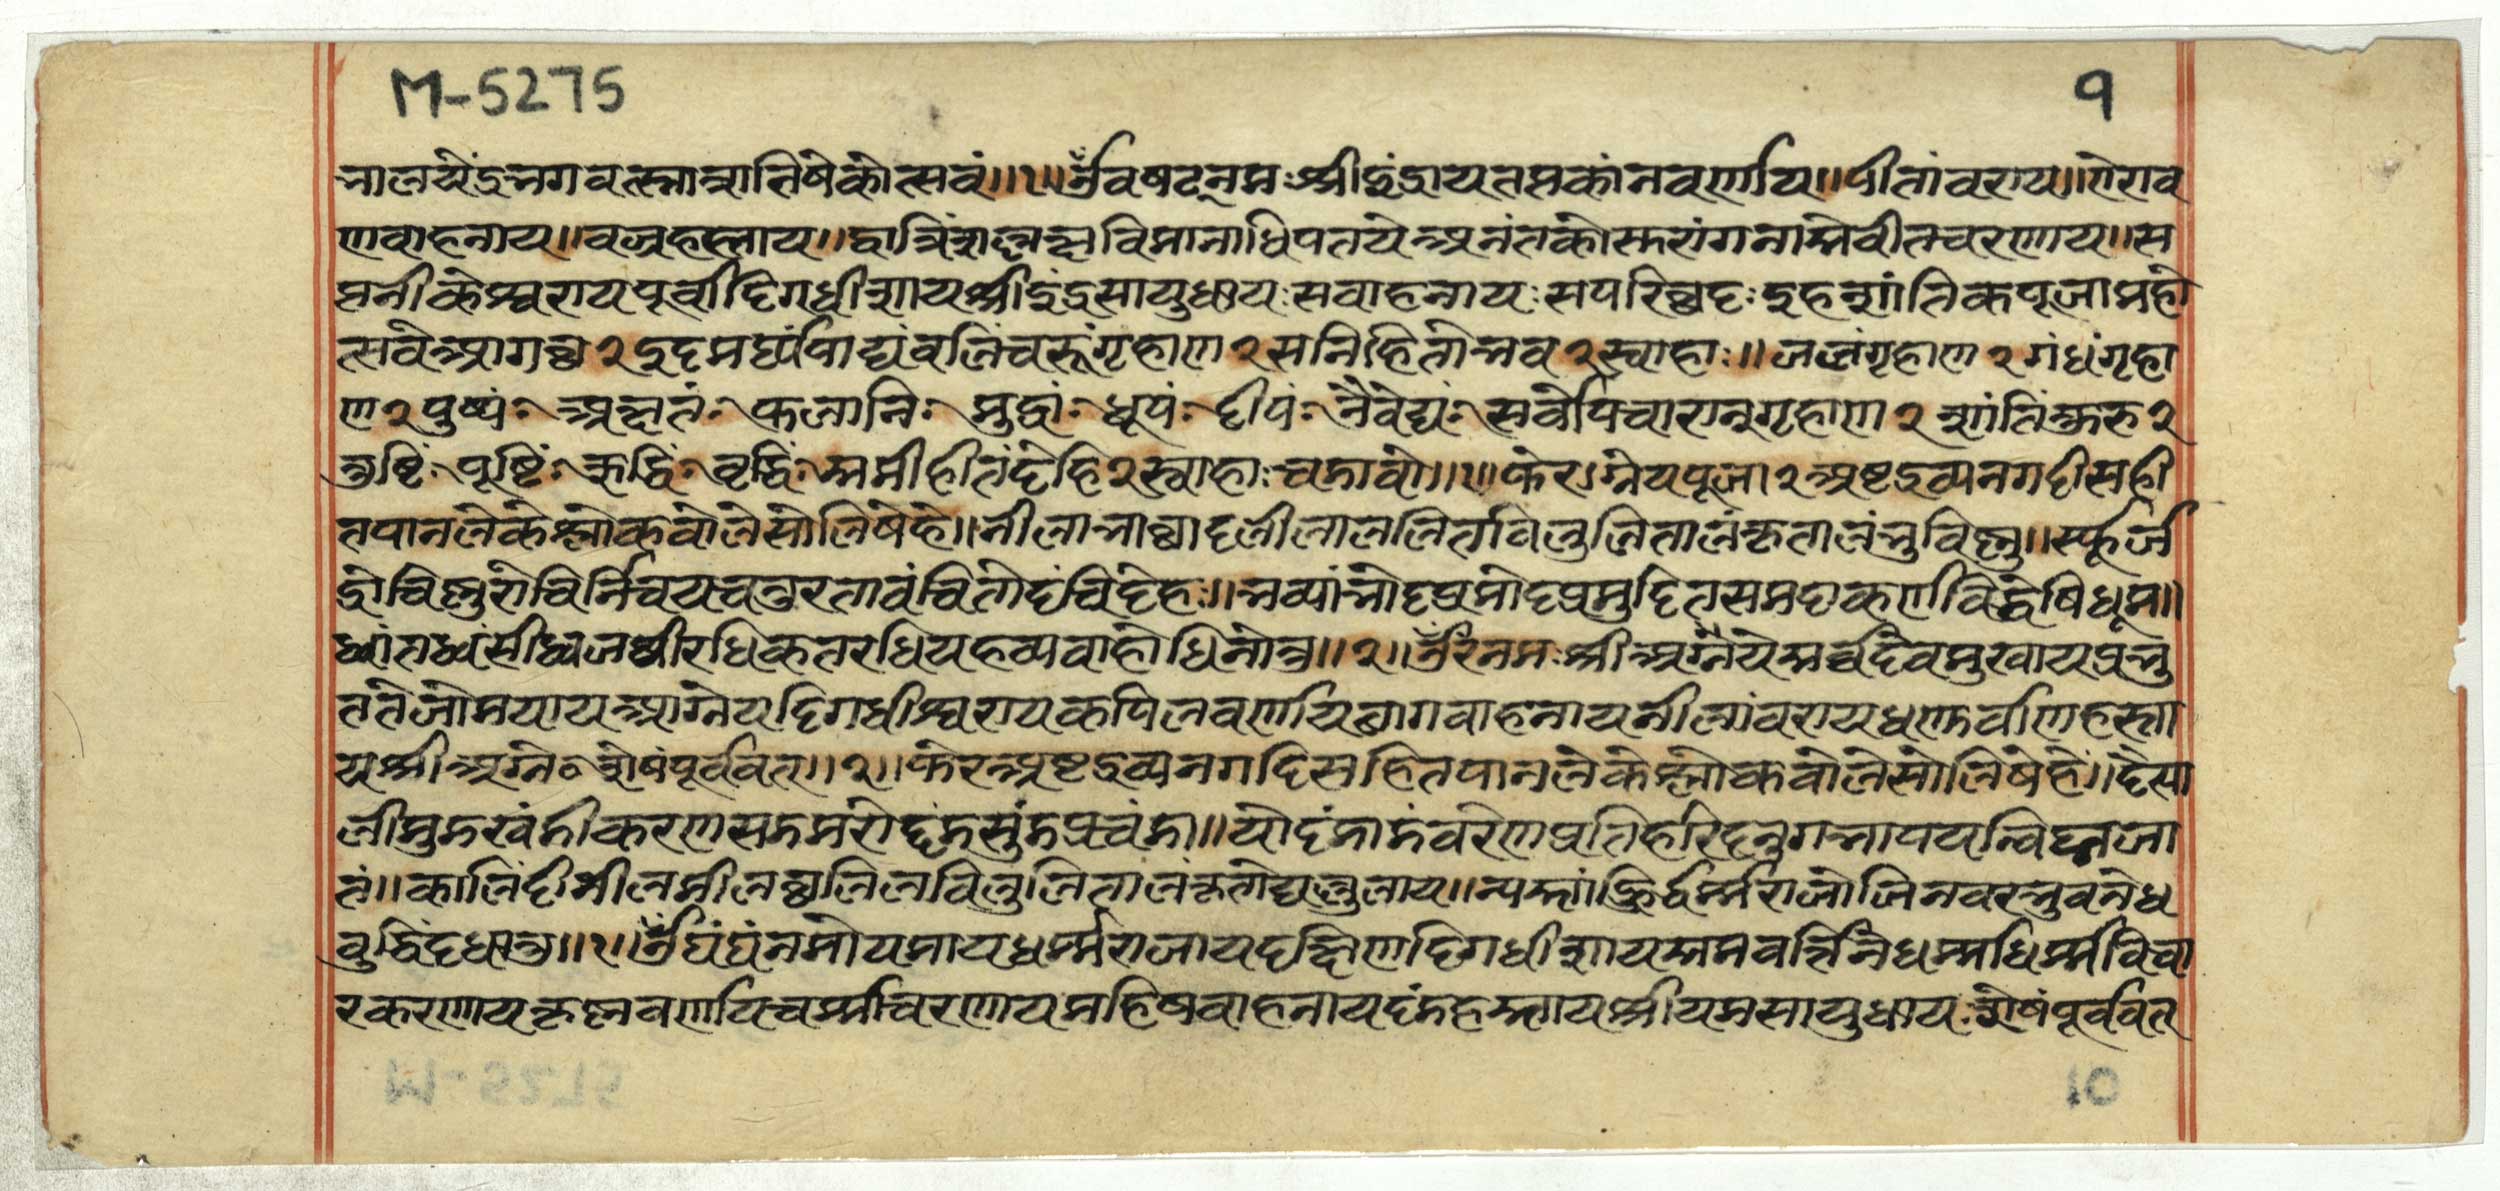 M-5275
१
भालयेंद्रभगवत्स्नात्राभिषेकोत्सवं॥१॥ ॐवषट्नमः श्रीइंद्रायतप्तकांनवर्णाय॥पीतांवराय॥ऐराव
णवाहनाय॥वज्रहस्ताय॥द्वात्रिंशल्लक्षविमानाधिपतये अनंतकोसुरांगनासेवीतचरणाय॥स
प्तनीकेश्वरायपूर्वादिगधीशायश्रीइंद्रसायुधायःसवाहनायःसपरिच्छदःइहशांतिकपूजामहो
त्सवेआगच्छ२इदमर्घ्यंपाद्यंवलिंचरूंगृहाण२सनिहितोभव२स्वाहाः॥जलंगृहाण२गंधंगृहा
ण२पुष्पं॰अक्षतं॰फलानि॰मुद्रां॰धूपं॰दीपं॰नैवेद्यं॰सर्वोपचारान्गृहाण२शांतिंकुरु२
तुष्टिं॰पुष्टिं॰ऋद्धिं॰वृद्धिं॰समीहीतंदेहि२स्वाहाः चढावो॥१॥फेरआग्नेयपूजा२अष्टद्रव्यनगदीसही
तपानलेकेश्लोकवोलेसोलिषेहे॥नीलाभाछादलीलाललितविलुलितालंकृतालंभुविष्णु॥स्फूर्ज
द्रोचिष्णुरोचिर्निचयचतुरतावंचितोदंचिदेहः॥नव्यांभोदप्रमोदप्रमुदितसमदाकर्णविद्वेषिधूम॥
ध्वांतध्वंसीध्वजश्रीरधिकतरधियहव्यवाहोधिनोतु॥२॥ ॐरंनमःश्रीअग्नेयेसर्वदेवमुखायप्रभु
ततेजोमयायआग्नेयदिगधीश्वरायकपिलवर्णायछागवाहनायनीलांवरायधनुर्वाणहस्ता
यश्रीअग्ने॰शेषंपूर्ववत॥२॥फेरअष्टद्रव्यनगदिसहितपानलेकेश्लोकवोलेसोलिषेहें॥दैत्या
लीमुडखंडीकरणसडमरोद्दंडसुंडप्रचंडा॥योदंडाडंवरेणप्रतिहरिदनुगभापयन्विघ्नजा
तं॥कालिंदीनीलमीलछलिलविलुलितालंकृतोद्यल्लुलाय॥न्यस्तांह्रिर्द्धर्म्मराजोजिनवरभुवनेध
वुद्धिंदधातु॥१॥ ॐघंघंनमोयमायधर्म्मराजायदक्षिणदिगधीशायसमवर्त्तिनेधर्माधर्मविचा
रकरणायकृष्णवर्णायचर्मावरणायमहिषवाहनायदंडहस्तायश्रीयमसायुधायःशेषंपूर्ववत